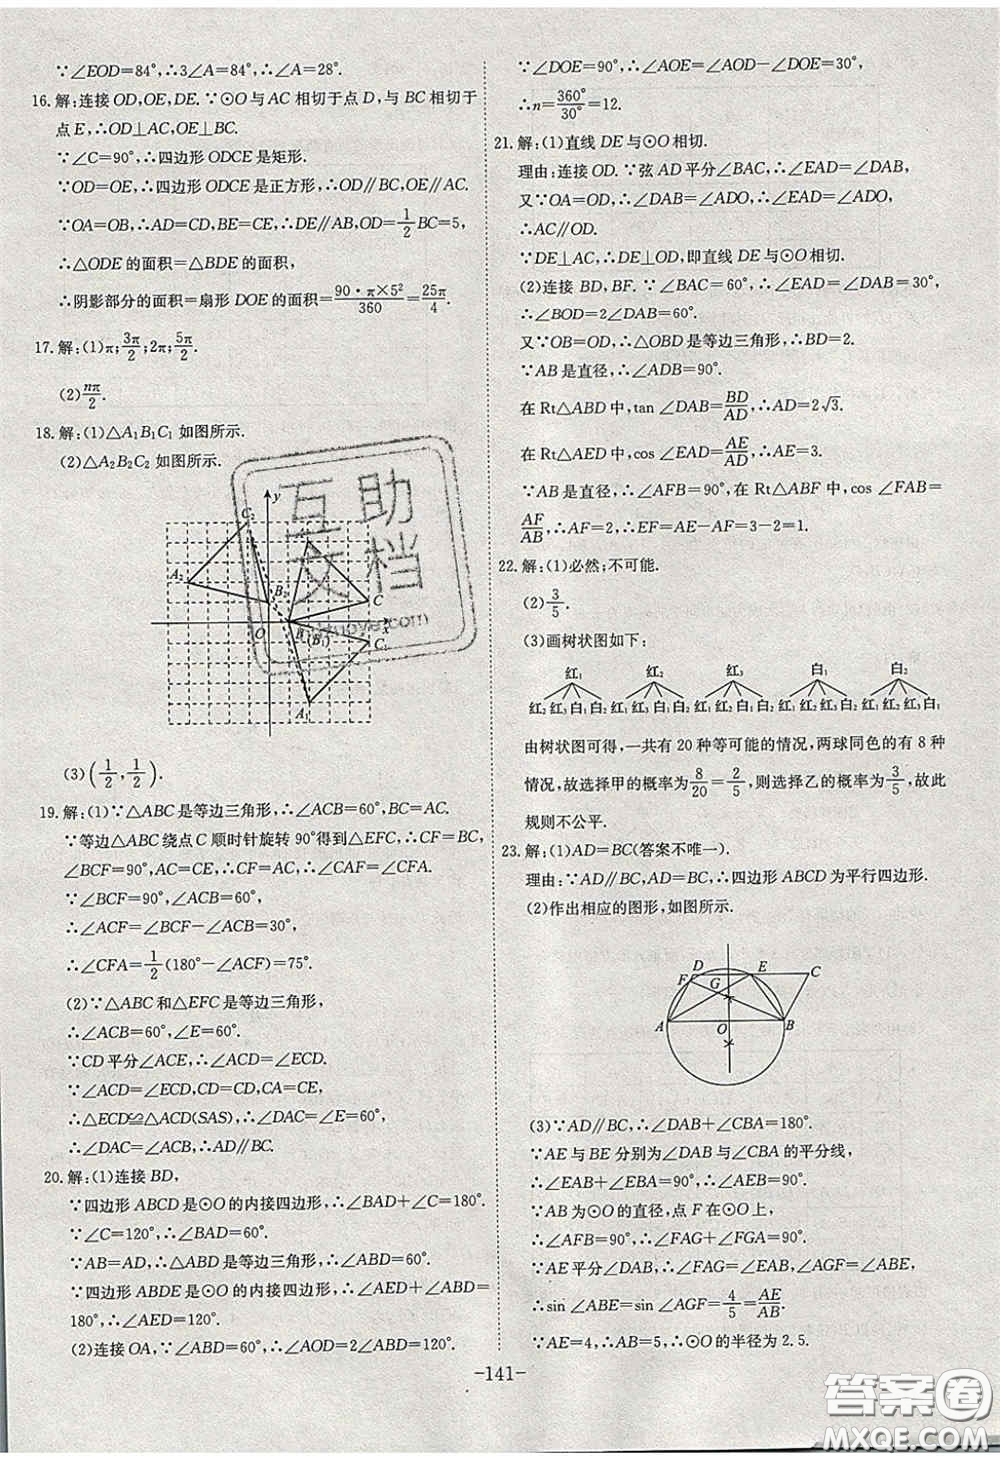 ∵∠EOD=84°,∴3∠A=84°,∴∠A=28°.
16.解:连接OD,OE,DE.∵⊙O与AC相切于点D,与BC相切于
点E,∴OD⊥AC,OE⊥BC.
∵∠C=90°,∴四边形ODCE是矩形.
∵OD=OE,∴四边形ODCE是正方形,∴OD∥BC,OE∥AC.
∵OA=OB,∴AD=CD,BE=CE,∴DE∥AB,OD=1/2BC=5,
∴△ODE的面积=△BDE的面积,
∴阴影部分的面积=扇形DOE的面积=90·π×5²/360=25π/4.
17.解:(1)π;3π/2;2π;5π/2.
(2)nπ/2.
18.解:(1)△A₁B₁C₁如图所示.
(2)△A₂B₂C₂如图所示.
y
C₂
A₂
B₂
C
O
B
(B₁)
x
C₁
A₁
(3)(1/2,1/2).
19.解:(1)∵△ABC是等边三角形,∴∠ACB=60°,BC=AC.
∵等边△ABC绕点C顺时针旋转90°得到△EFC,∴CF=BC,
∠BCF=90°,AC=CE,∴CF=AC,∴∠CAF=∠CFA.
∵∠BCF=90°,∠ACB=60°,
∴∠ACF=∠BCF-∠ACB=30°,
∴∠CFA=1/2(180°-∠ACF)=75°.
(2)∵△ABC和△EFC是等边三角形,
∴∠ACB=60°,∠E=60°.
∵CD平分∠ACE,∴∠ACD=∠ECD.
∵∠ACD=∠ECD,CD=CD,CA=CE,
∴△ECD≌△ACD(SAS),∴∠DAC=∠E=60°,
∴∠DAC=∠ACB,∴AD∥BC.
20.解:(1)连接BD,
∵四边形ABCD是⊙O的内接四边形,∴∠BAD+∠C=180°.
∵∠C=120°,∴∠BAD=60°.
∵AB=AD,∴△ABD是等边三角形,∴∠ABD=60°.
∵四边形ABDE是⊙O的内接四边形,∴∠AED+∠ABD=
180°,∴∠AED=120°.
(2)连接OA,∵∠ABD=60°,∴∠AOD=2∠ABD=120°.
∵∠DOE=90°,∴∠AOE=∠AOD-∠DOE=30°,
∴n=360°/30°=12.
21.解:(1)直线DE与⊙O相切.
理由:连接OD.∵弦AD平分∠BAC,∴∠EAD=∠DAB,
又∵OA=OD,∴∠DAB=∠ADO,∴∠EAD=∠ADO,
∴AC∥OD.
∵DE⊥AC,∴DE⊥OD,即直线DE与⊙O相切.
(2)连接BD,BF.∵∠BAC=60°,∴∠EAD=∠DAB=30°,
∴∠BOD=2∠DAB=60°.
又∵OB=OD,∴△OBD是等边三角形,∴BD=2.
∵AB是直径,∴∠ADB=90°.
在Rt△ABD中,tan∠DAB=BD/AD,∴AD=2√3.
在Rt△AED中,cos∠EAD=AE/AD,∴AE=3.
∵AB是直径,∴∠AFB=90°,在Rt△ABF中,cos∠FAB=
AF/AB,∴AF=2,∴EF=AE-AF=3-2=1.
22.解:(1)必然;不可能.
(2)3/5.
(3)画树状图如下:
红₁ 红₂ 红₃ 白₁ 白₂
红₂红₃白₁白₂ 红₁红₃白₁白₂ 红₁红₂白₁白₂ 红₁红₂红₃白₂ 红₁红₂红₃白₁
由树状图可得,一共有20种等可能的情况,两球同色的有8种
情况,故选择甲的概率为8/20=2/5,则选择乙的概率为3/5,故此
规则不公平.
23.解:(1)AD=BC(答案不唯一).
理由:∵AD∥BC,AD=BC,∴四边形ABCD为平行四边形.
(2)作出相应的图形,如图所示.
D
E
C
F
G
A
O
B
(3)∵AD∥BC,∴∠DAB+∠CBA=180°.
∵AE与BE分别为∠DAB与∠CBA的平分线,
∴∠EAB+∠EBA=90°,∴∠AEB=90°.
∵AB为⊙O的直径,点F在⊙O上,
∴∠AFB=90°,∴∠FAG+∠FGA=90°.
∵AE平分∠DAB,∴∠FAG=∠EAB,∴∠AGF=∠ABE,
∴sin∠ABE=sin∠AGF=4/5=AE/AB.
∵AE=4,∴AB=5,∴⊙O的半径为2.5.
-141-
互助
文档
答案卷
MXQE.COM